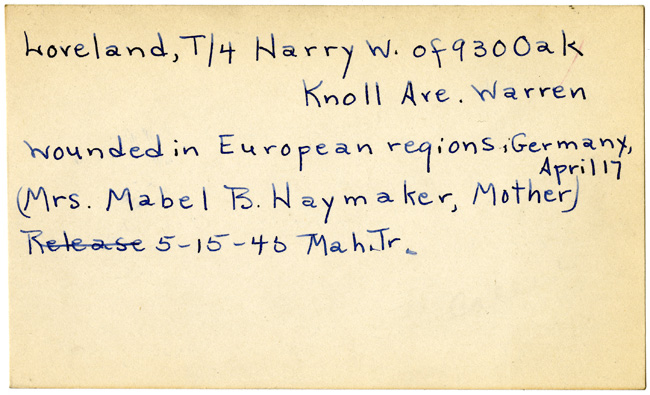 Loveland, T/4 Harry W. of 930 Oak
Knoll Ave. Warren
wounded in European regions; Germany,
April 17
(Mrs. Mabel B. Haymaker, Mother)
Release 5-15-45 Mah. Tr.